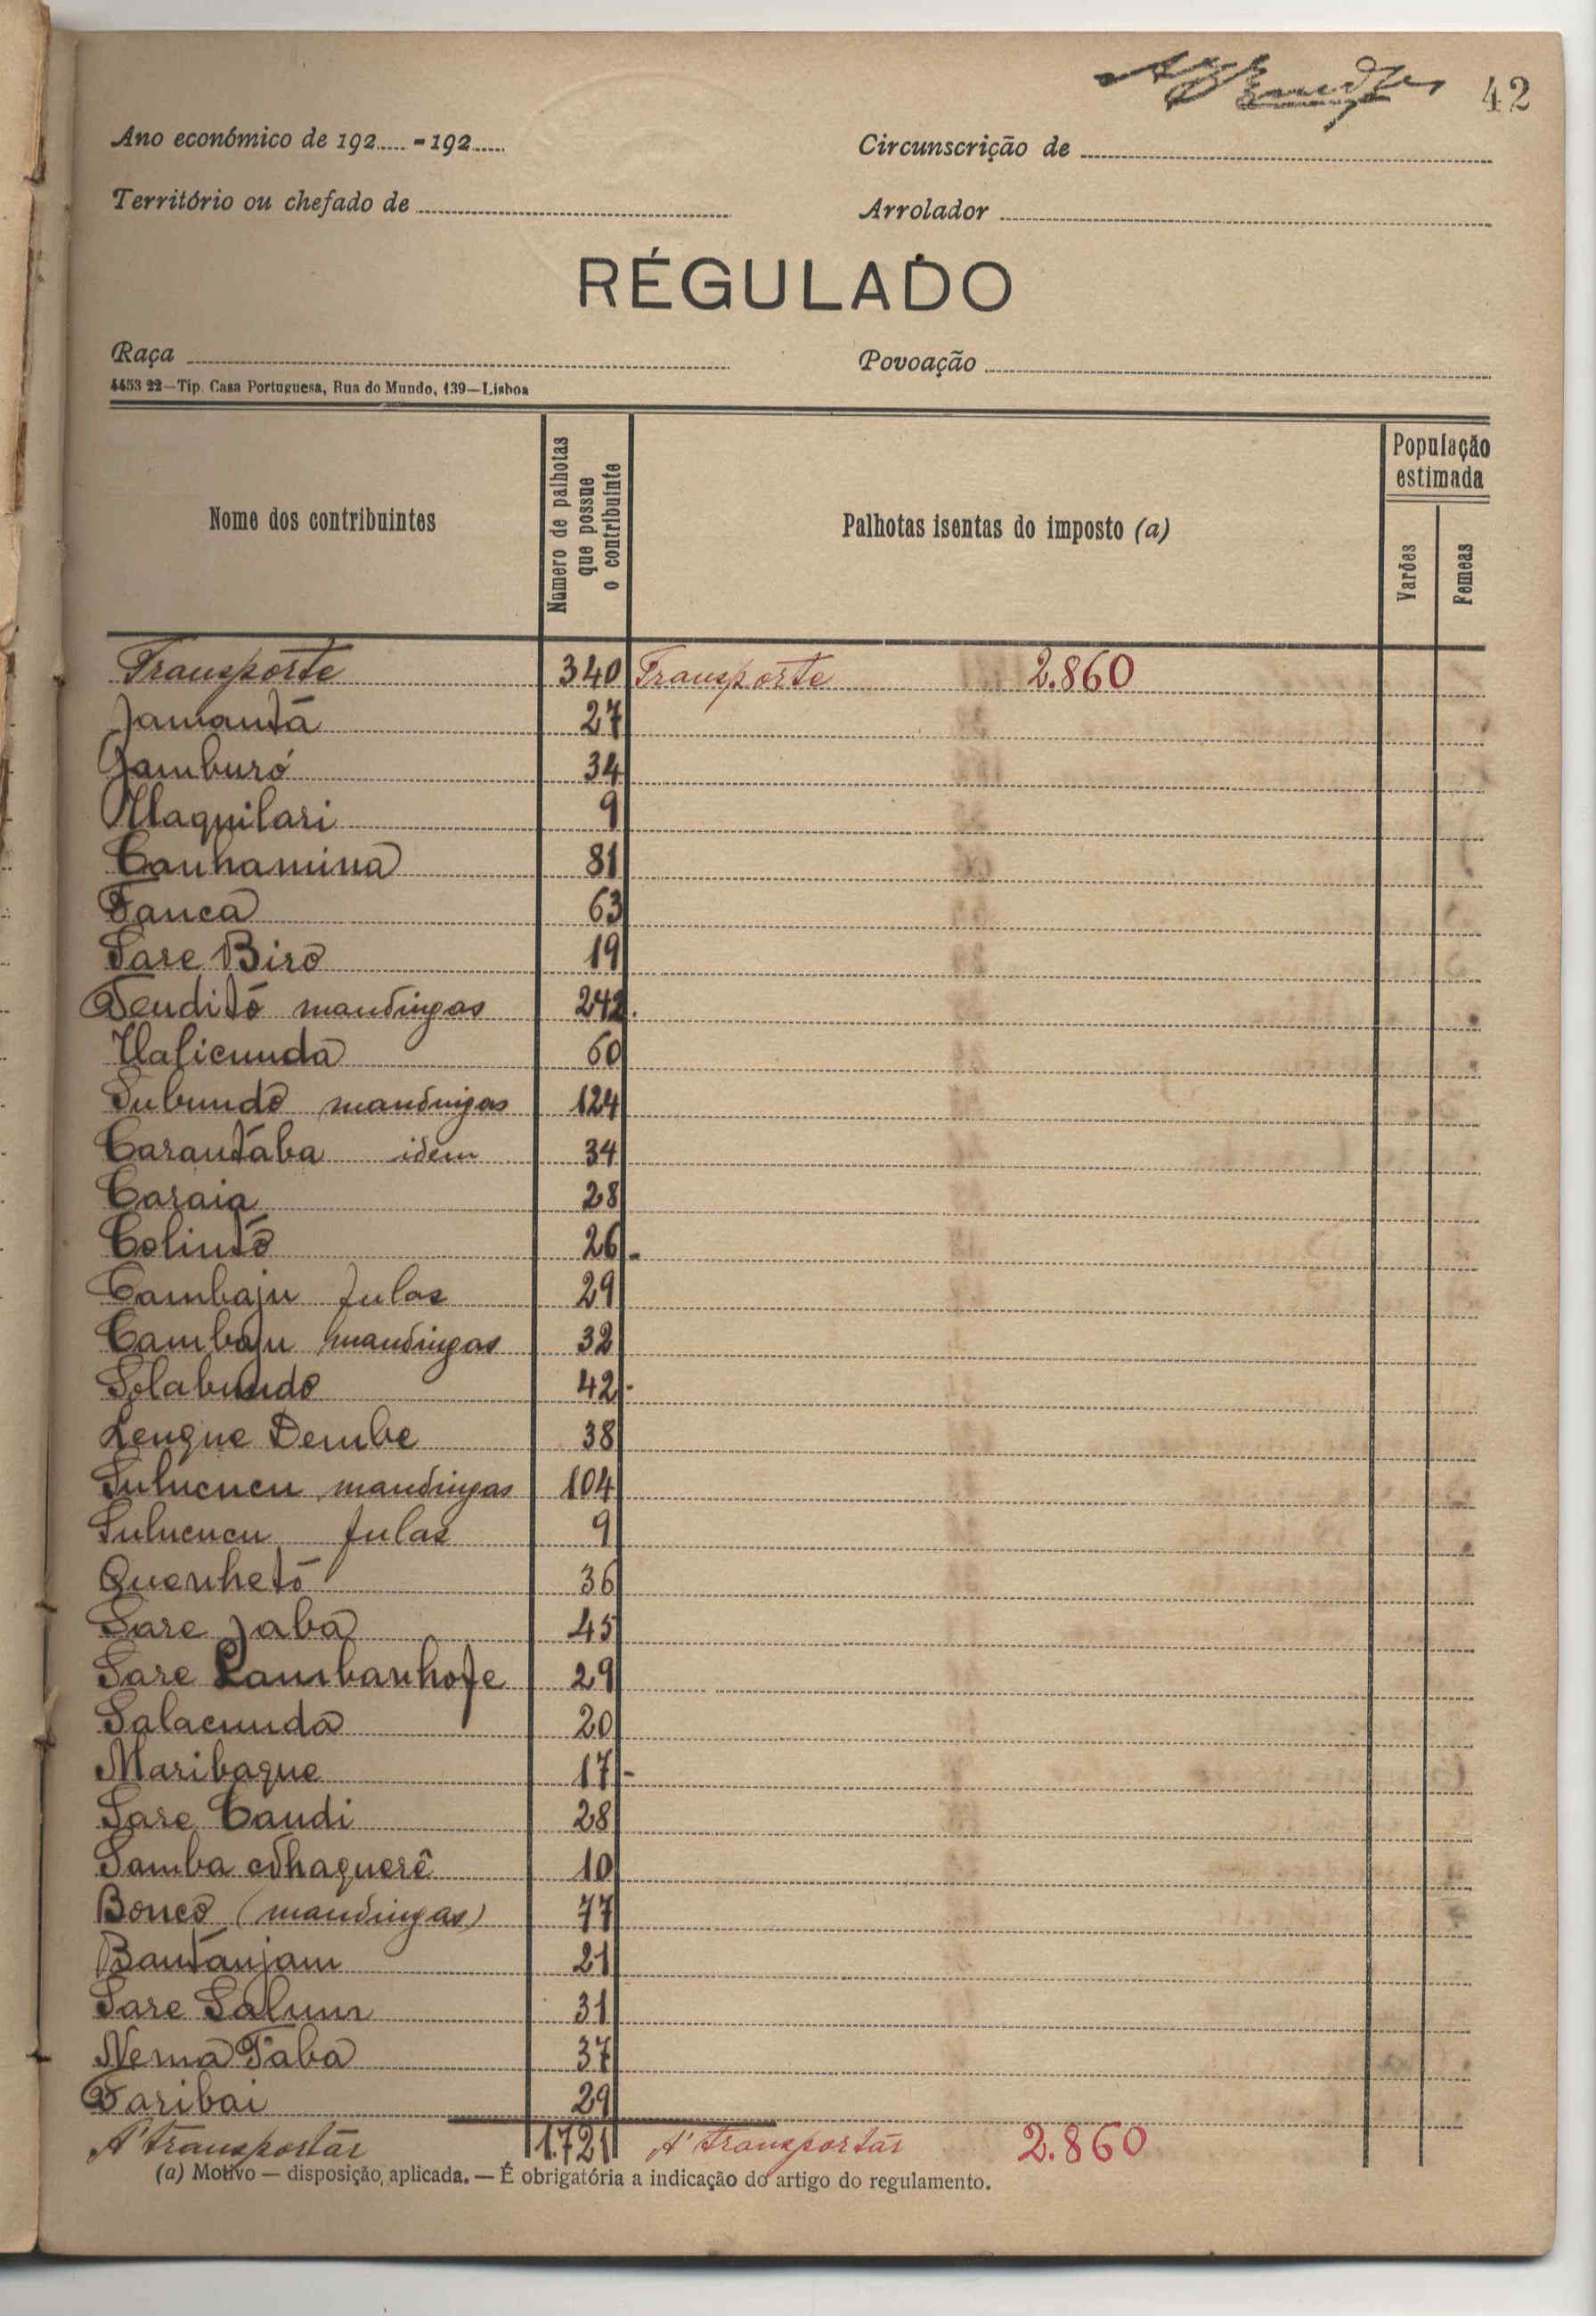 42
Ano económico de 192..... - 192.....
Circunscrição de
Território ou chefado de
Arrolador
RÉGULADO
Raça
Povoação
4453 22—Tip. Casa Portuguesa, Rua do Mundo, 139—Lisboa
Nome dos contribuintes
Número de palhotas que possue o contribuinte
Palhotas isentas do imposto (a)
População estimada
Varões
Femeas
Transporte 340 Transporte 2.860
Jamantã 27
Jamburó 34
Maquilari 9
Canhamina 81
Fanca 63
Sare Biro 19
Tenditó mandingas 242
Malicunda 60
Subundo mandingas 124
Carantába idem 34
Caraia 28
Colintó 26
Cambaju fulas 29
Cambaju mandingas 32
Solabundo 42
Lengue Dembe 38
Sulucucu mandingas 104
Sulucucu fulas 9
Quenhetó 36
Sare Jaba 45
Sare 29
Salacunda 20
Maribaque 17
Sare Candi 28
Samba 10
Boncó (mandingas) 77
Bantanjam 21
Sare Salum 31
Nema Taba 37
Faribai 29
A transportar 1.721 A transportar 2.860
(a) Motivo — disposição, aplicada. — É obrigatória a indicação do artigo do regulamento.